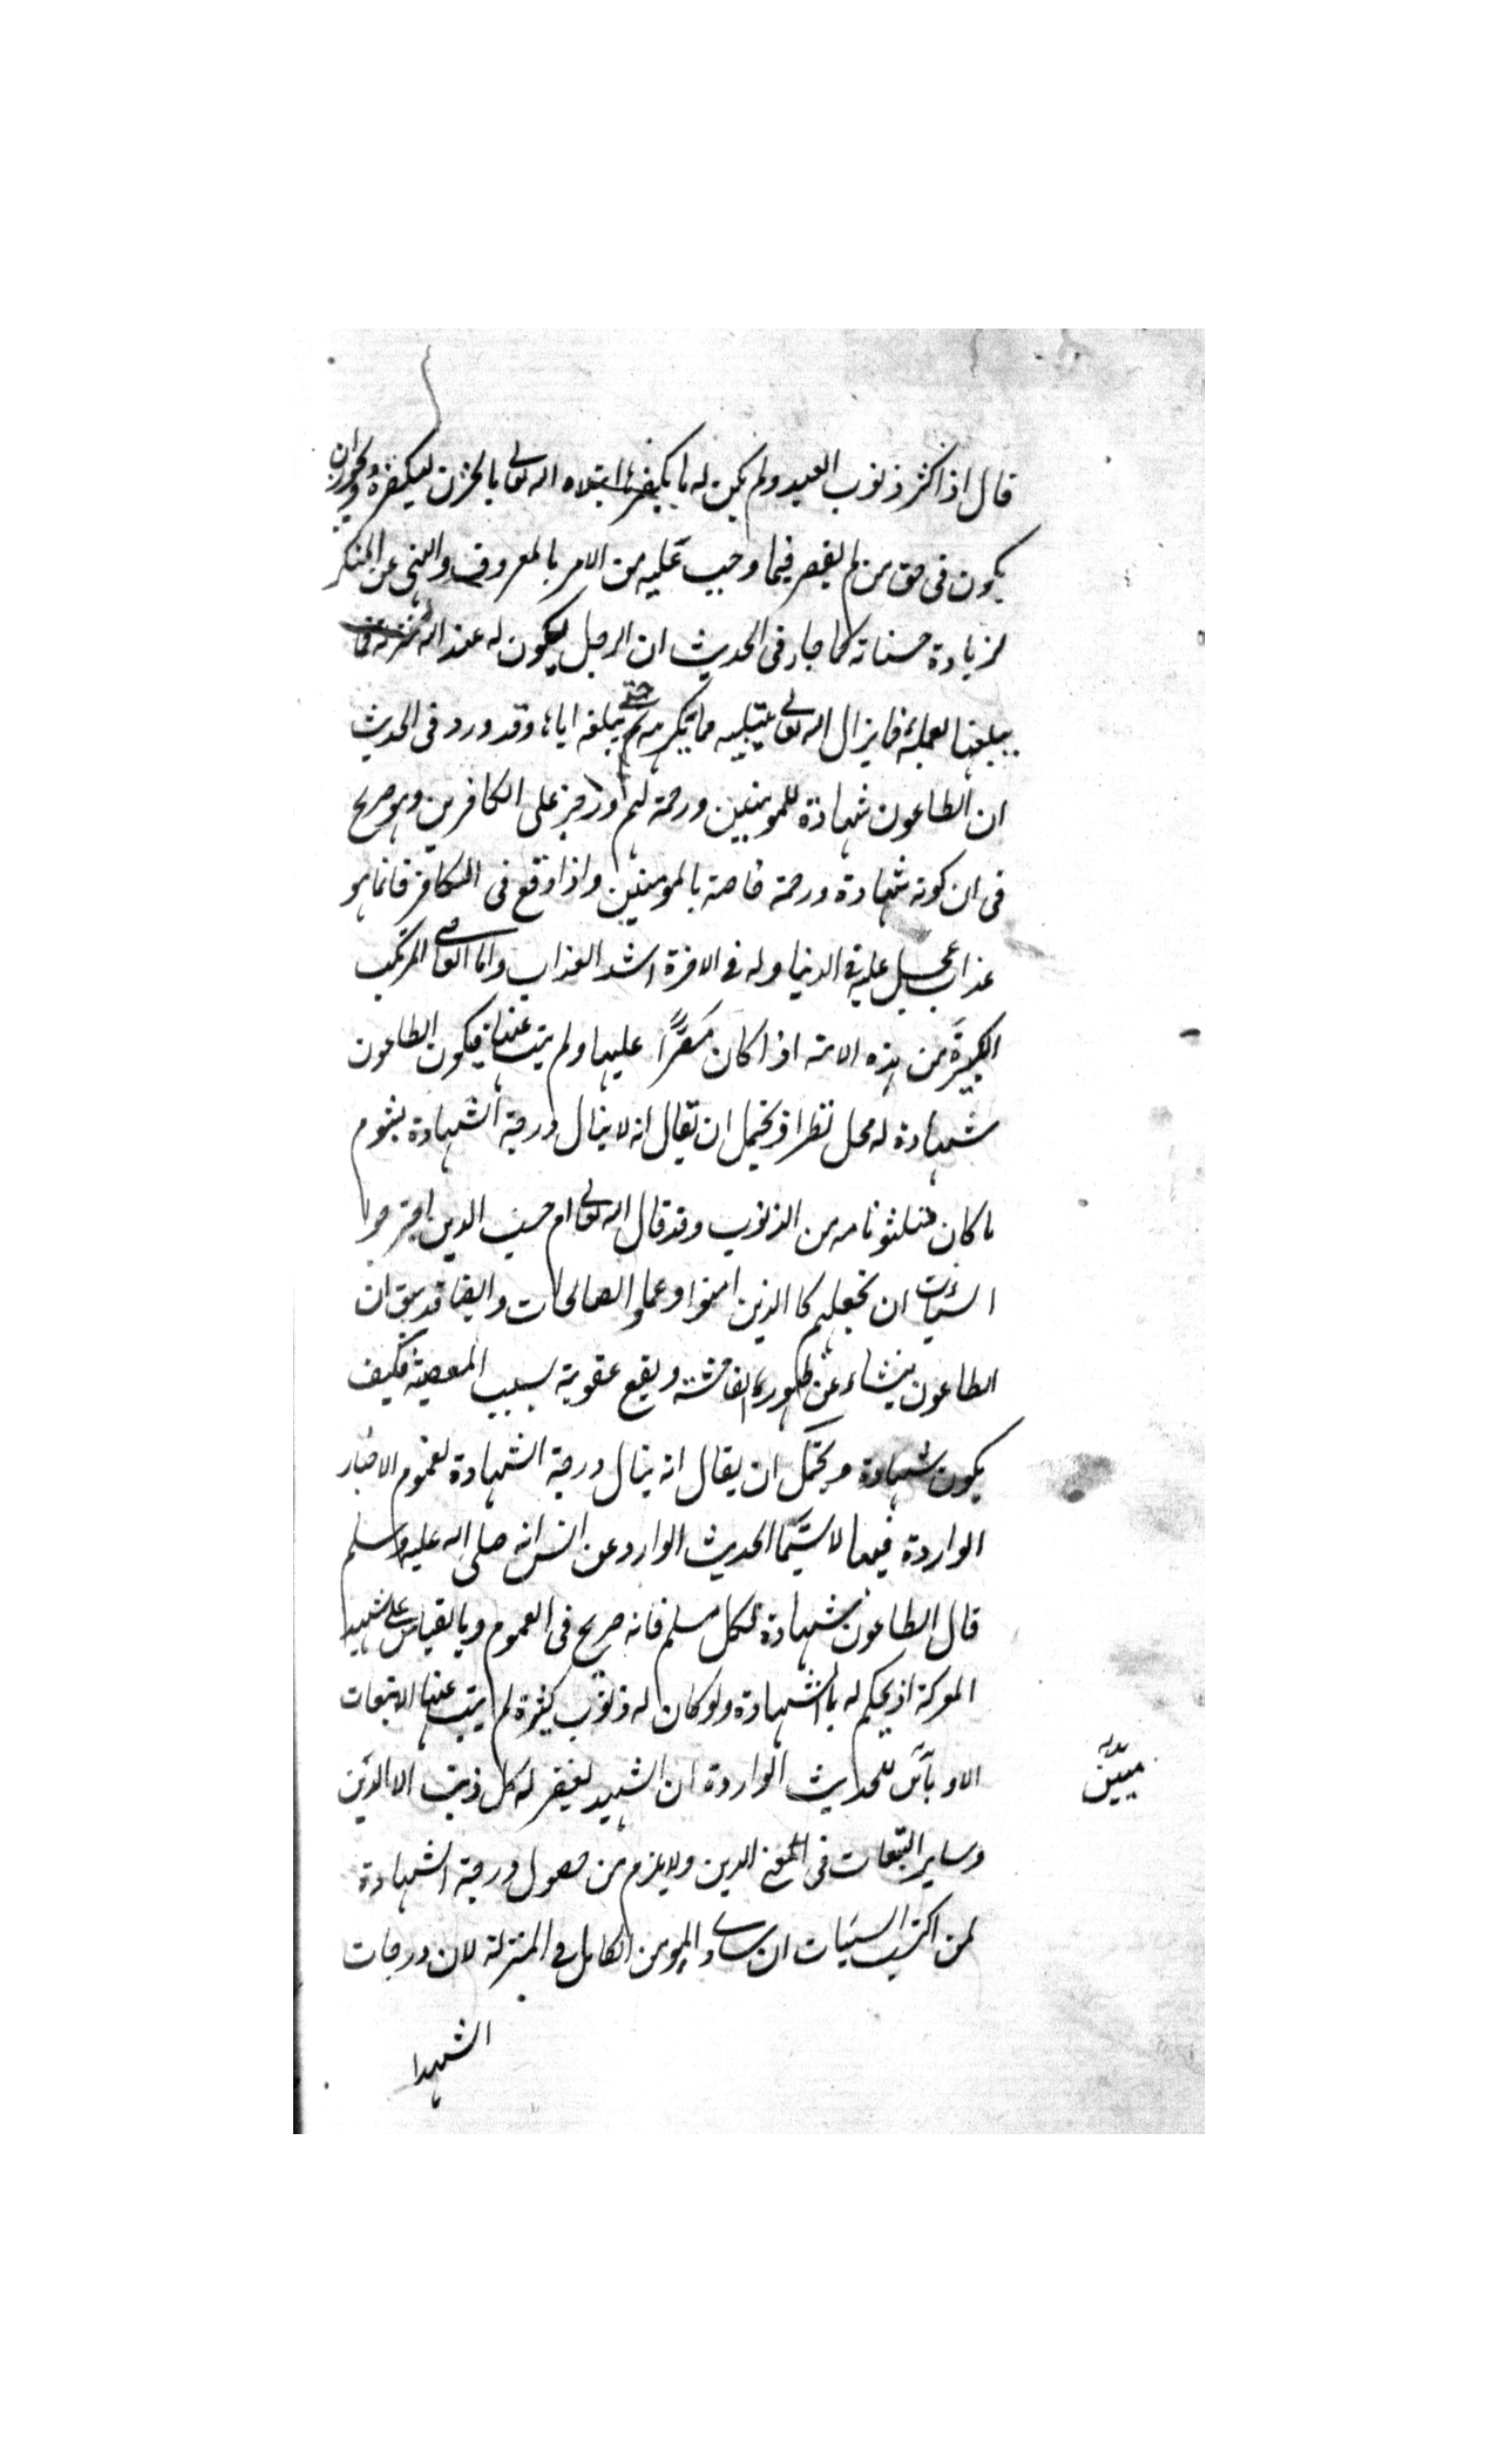 قال اذا كثر ذنوب العبد ولم يكن له ما يكفرها ابتلاه الله تعالى بالحزن ليكفره ويجوز ان
يكون فى حق من لم يقصر فيما وجب عليه من الامر بالمعروف والنهى عن المنكر
لزيادة حسناته كما جاء فى الحديث ان الرجل ليكون له عند الله منزلة فما
يبلغها بعمله فما يزال الله تعالى يبتليه مما يكره حتى يبلغه اياها وقد ورد فى الحديث
ان الطاعون شهادة للمومنين ورحمة لهم ورجز على الكافرين وهو صريح
فى ان كونه شهادة ورحمة خاصة بالمومنين واذا وقع فى الكافر فانما هو
عذاب عجل عليه فى الدنيا وله فى الاخرة اشد العذاب واما العاصى المرتكب
الكبيرة من هذه الامة اذا كان مقرًّا عليها ولم يتب عنها فيكون الطاعون
شهادة له محل نظر اذ يحتمل ان يقال انه لا ينال درجة الشهادة بشوم
ما كان متلوثا به من الذنوب وقد قال الله تعالى ام حسب الذين اجترحوا
السيئات ان نجعلهم كالذين امنوا وعملوا الصالحات وايضا قد سبق ان
الطاعون ينشاء عن ظهور الفاحشة ويقع عقوبة بسبب المعصية فكيف
يكون شهادة ويحتمل ان يقال انه ينال درجة الشهادة لعموم الاخبار
الواردة فيها لا سيّما الحديث الوارد عن انس انه صلى الله عليه وسلم
قال الطاعون شهادة لكل مسلم فانه صريح فى العموم وبالقياس على شهيد
المعركة اذ يحكم له بالشهادة ولو كان له ذنوب كثيرة لم يتب عنها الا تبعات
للحديث الواردة ان الشهيد يغفر له كل ذنب الا الدين
وساير التبعات فى معنى الدين ولا يلزم من حصول درجة الشهادة
لمن اكتسب السيات ان يساوى المومن الكامل فى المنزلة لان درجات
الشهدا